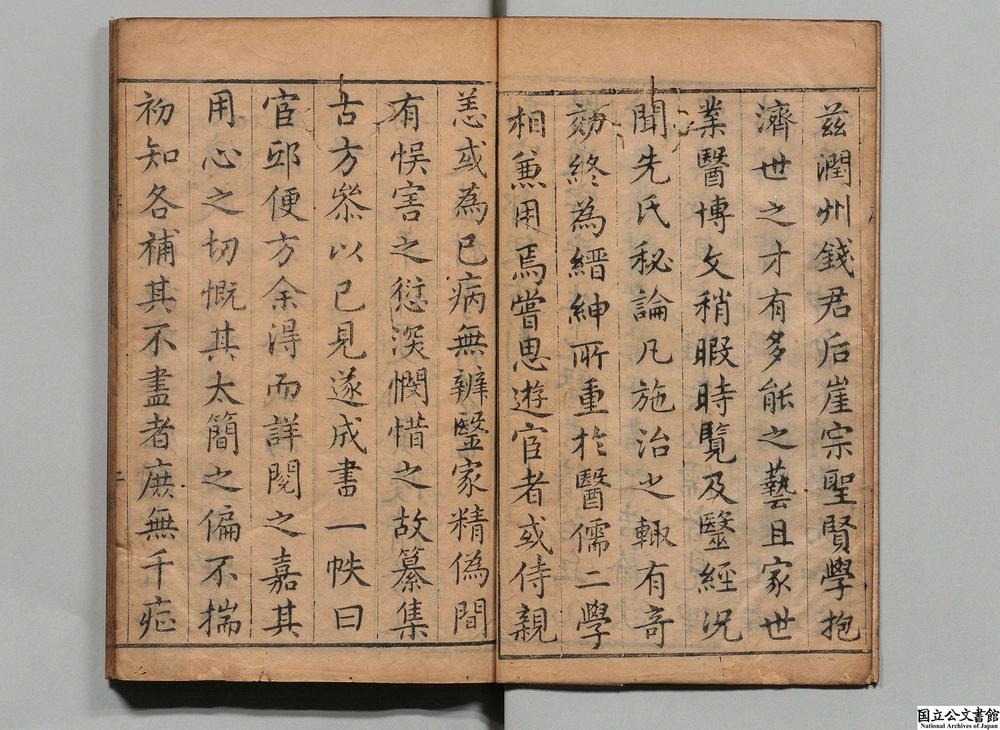 兹潤州錢君后崖宗聖賢學抱
濟世之才有多能之藝且家世
業醫博文稍暇時覽及醫經况
聞先氏秘論凡施治之輙有竒
効終為縉紳所重於醫儒二學
相兼用焉嘗思遊宦者或侍親
恙或為己病無辨醫家精偽間
有悮害之愆深憫惜之故纂集
古方叅以己見遂成書一帙曰
宦邸便方余得而詳閱之嘉其
用心之切慨其太簡之偏不揣
初知各補其不盡者庶無千疪
国立公文書館
National Archives of Japan